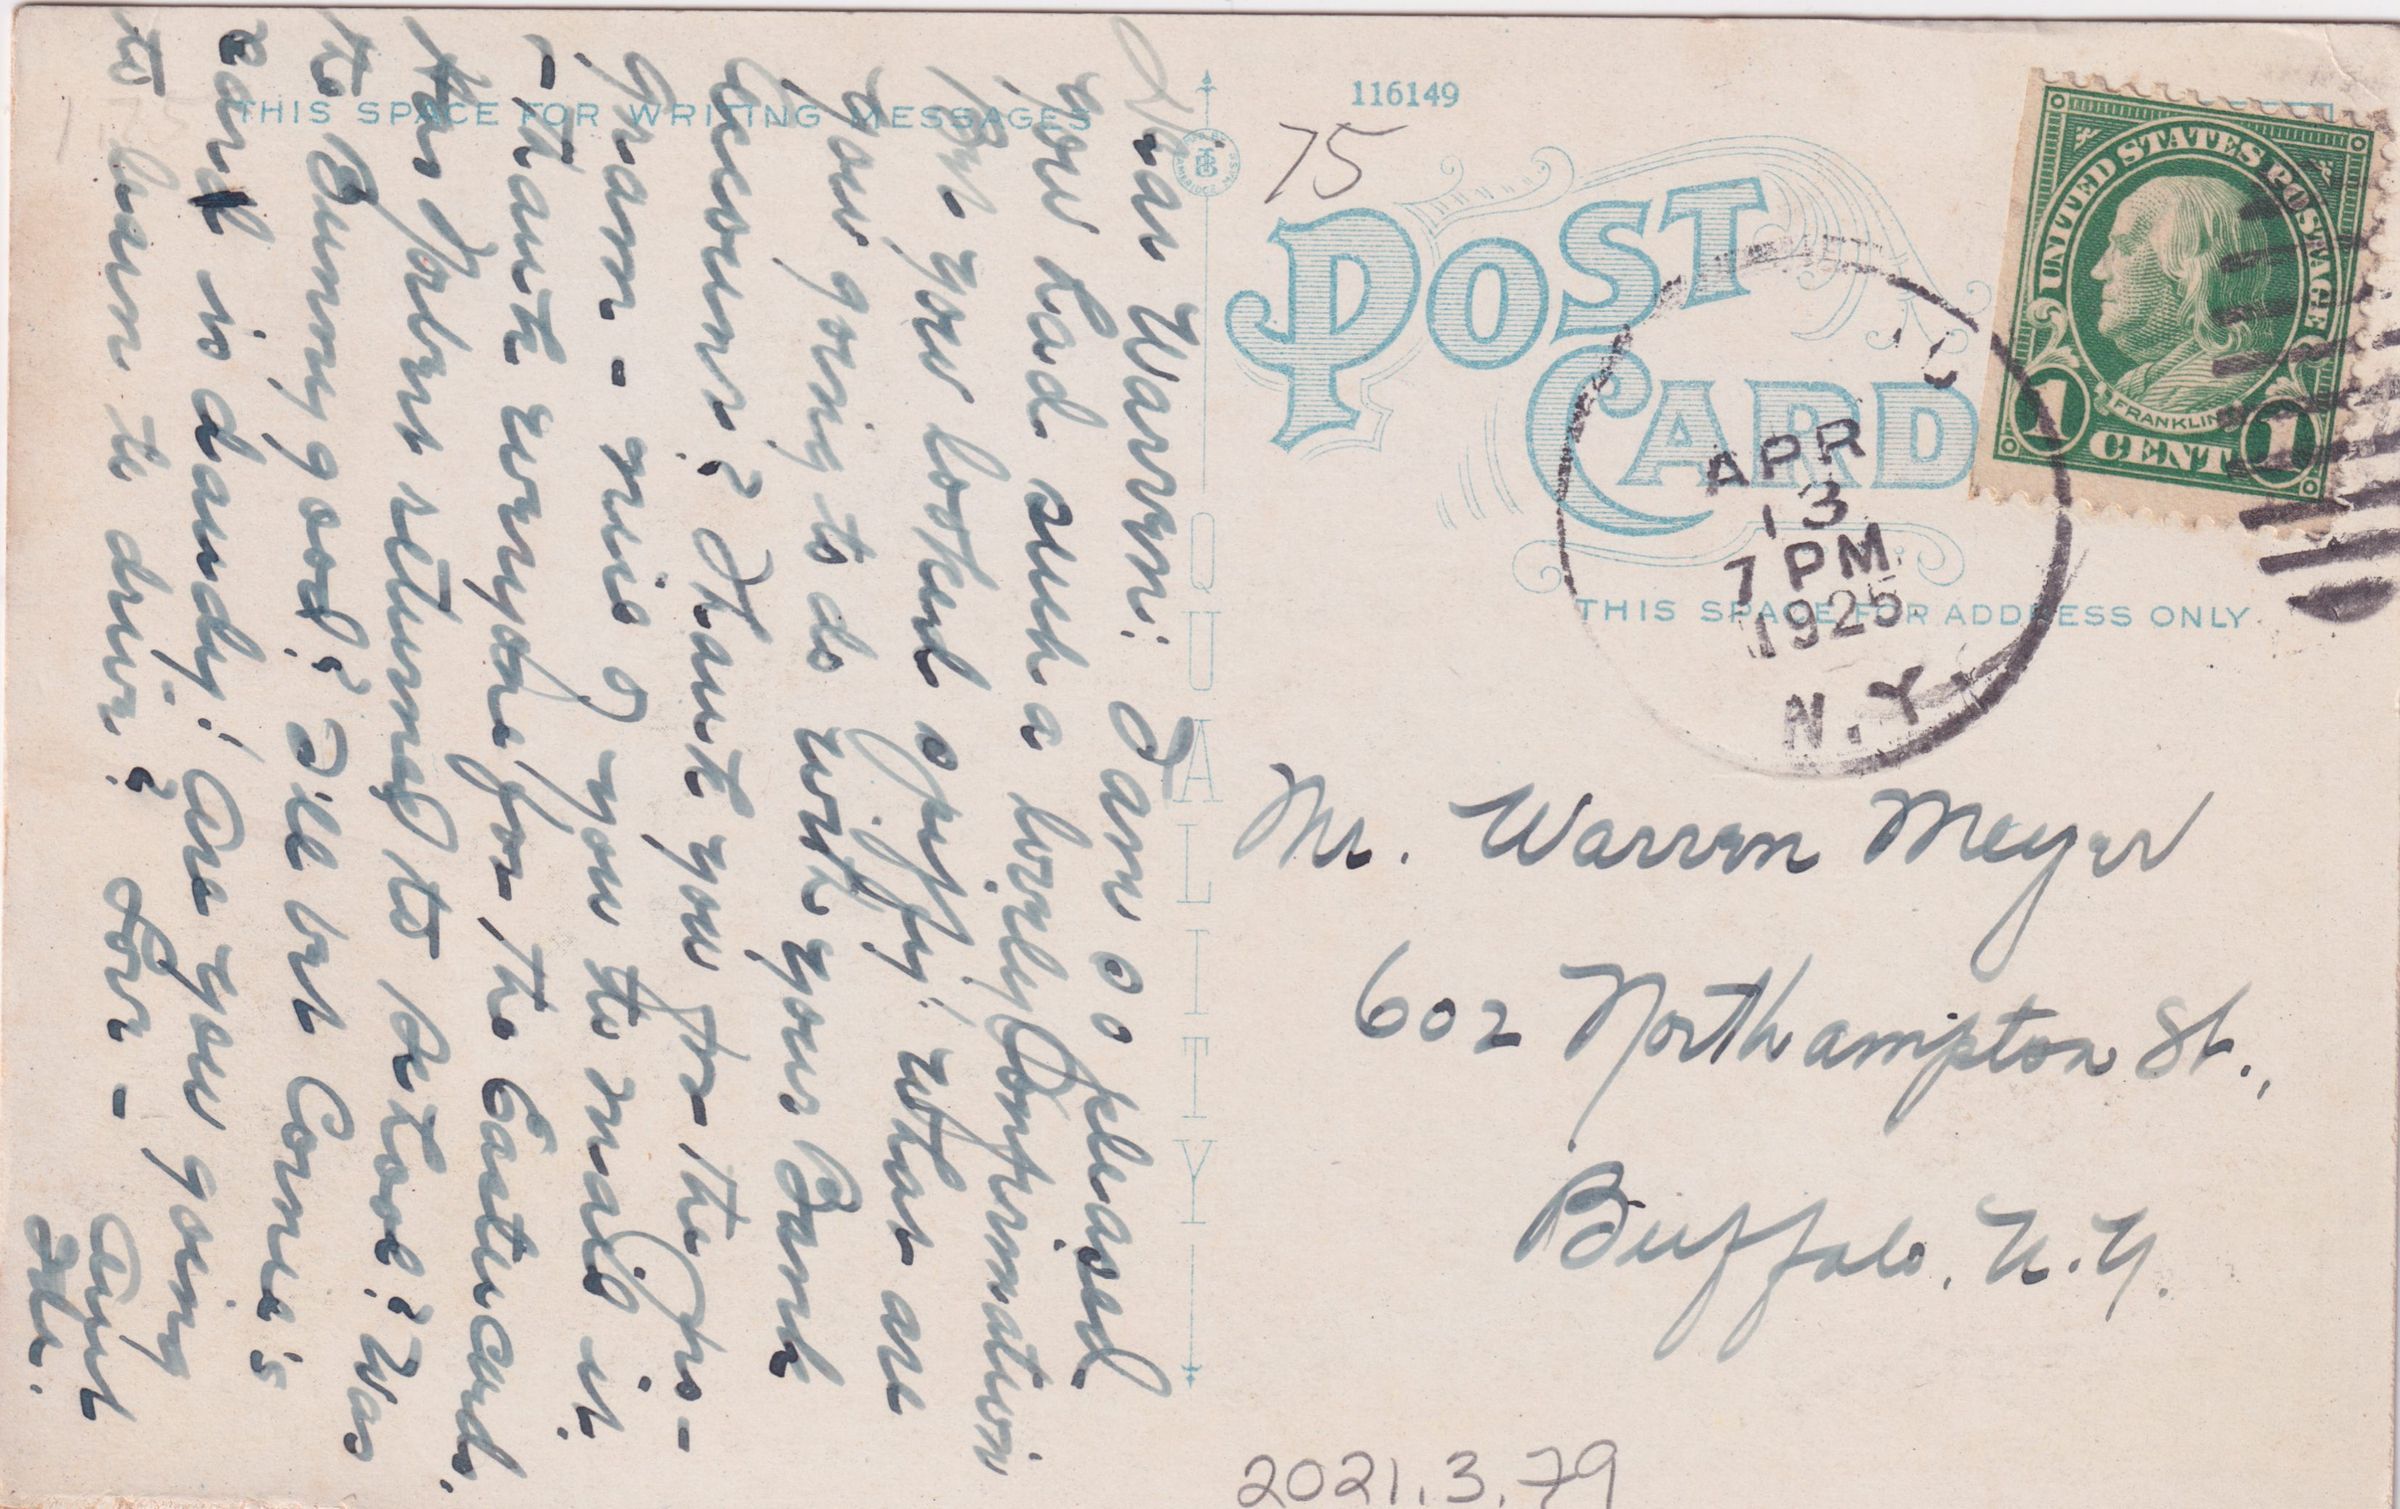 THIS SPACE FOR WRITING MESSAGES
Dear Warren: Iam so pleased
you had such a lovely Confirmation
Bet you looked spiffy! What are
you going to do with your Bank
account? Thank you for the pro-
gram - nice of you to mail it.
- Thank everyone for the Easter cards.
Has Robert returned to school? Was
the Bunny good? I'll bet Cornea's
card is dandy! Are you going
to learn to drive? Love -
Aunt
QUALITY
116149
75
POST
CARD
THIS SPACE FOR ADDRESS ONLY
UNITED STATES POSTAGE
FRANKLIN
1 CENT 1
APR
13
7 PM
1925
N.Y.
Mr. Warren Meyer
602 Northampton St.,
Buffalo, N.Y.
2021.3.79